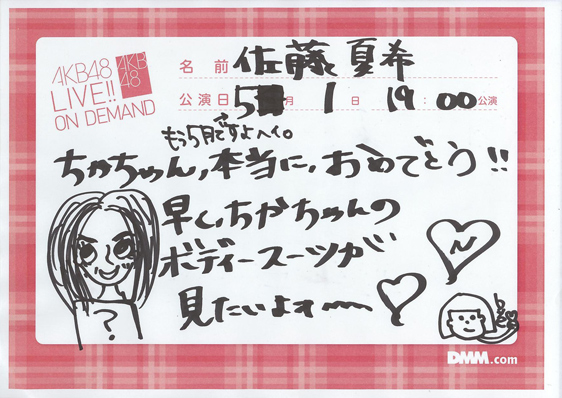 AKB48
LIVE!!
ON DEMAND
AKB
48
名前 佐藤 夏希
公演日 5月 1日 19:00公演
もう5月ですよヘイ。
ちかちゃん,本当に,おめでとう!!
早く,ちかちゃんの
ボディースーツが
見たいよォ〜〜
?
DMM.com